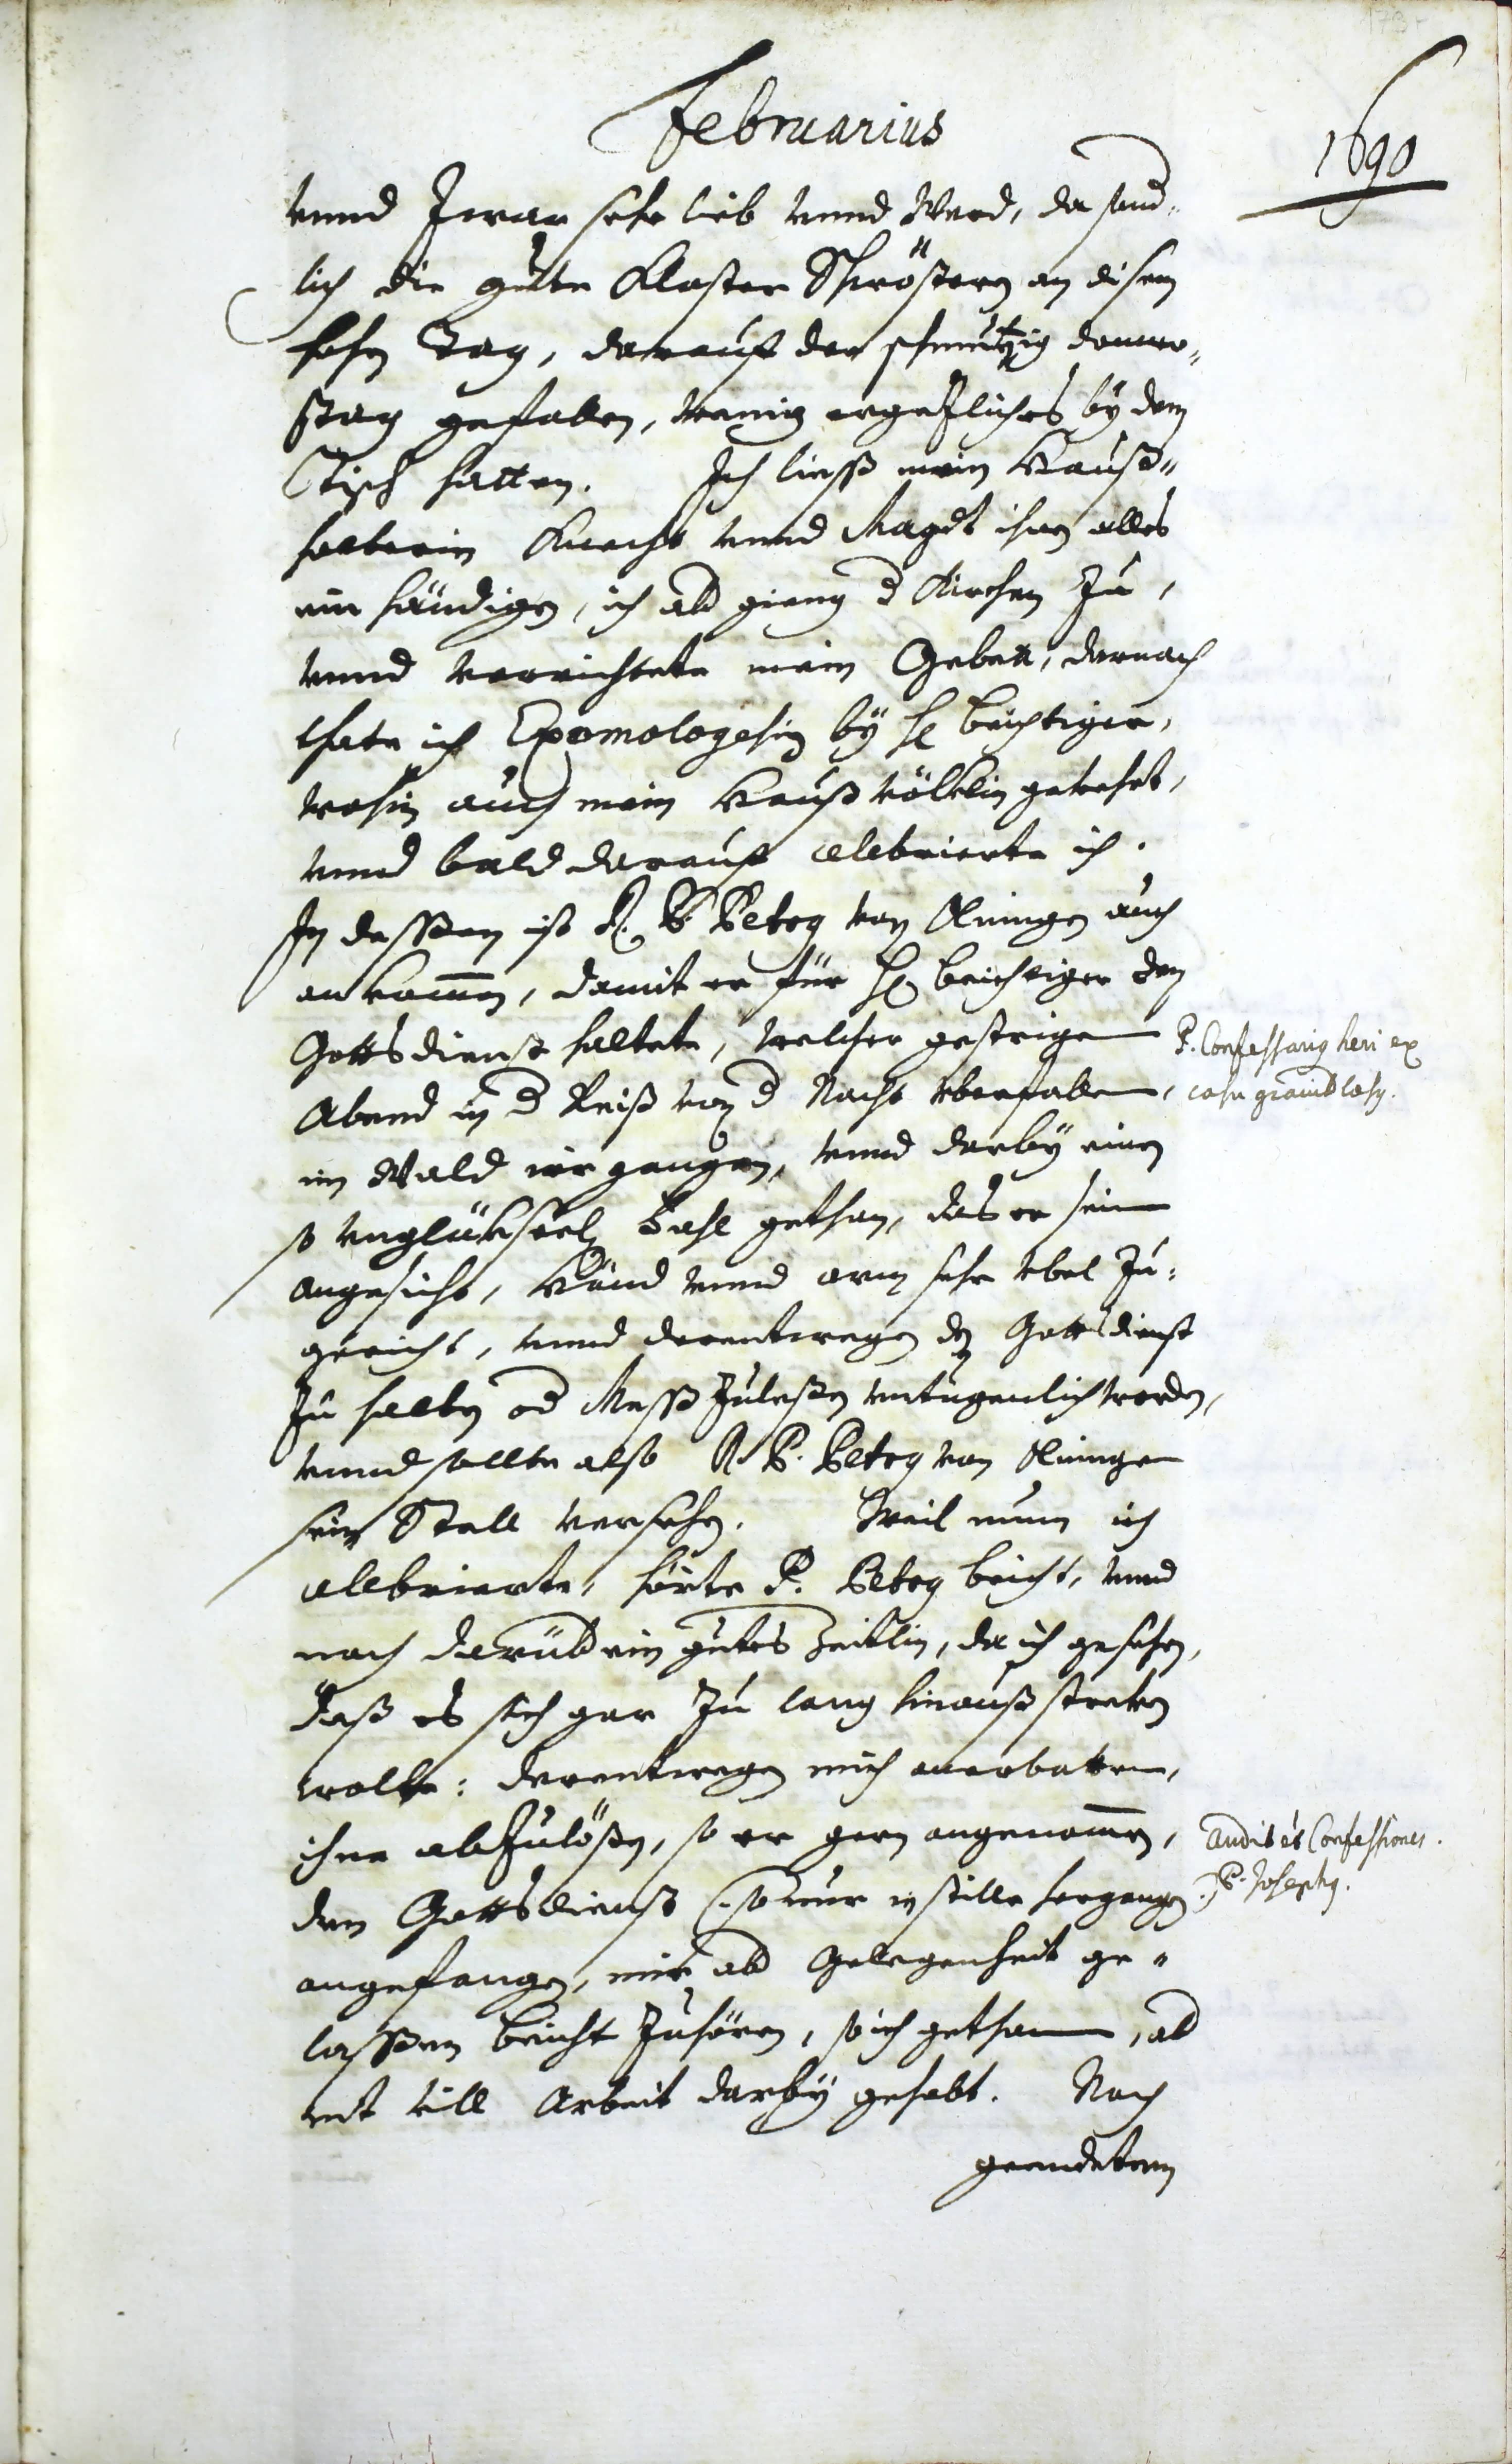 Februarius
1690
vnnd Zwar sehr lieb vnnd Werd, da sond„
lich die guete Closter Schwöstern an disem
hohen Tag, darauf der schmutzig donner„
stag gefallen, wenig ergezliches bÿ dem
Tisch hatten. Ich liesse mein Hauß„
halterin Knecht vnnd Magdt ihnen alles
ein händigen, ich abd gieng d Kirchen Zu,
vnnd verrichtete mein Gebett, darnach
thate ich Exomologesin bÿ H Beichtiger,
wohin auch mein Hauß völklin gekehrt,
vnnd bald darauf celebrierte ich.
In dessen ist R. P. Betrg von Öhningen auch
ankommen, damit er für H Beichtiger den
Gottsdienst haltete, welcher gestrigen
Abend in d Reiß von d Nacht vberfallen,
im Wald irr gangen, vnnd darbÿ einen
so vnglükseel fahl gethan, das er sein
angesicht, Händ vnnd arm sehr vbel Zu„
gericht, vnnd derentwegen den Gottsdienst
Zu halten od Mess Zulesen vntugenlich worden,
vnnd sollte also R. P. Betrg von Öhningen
sein Stell versehen. Weil nunn ich
celebrierte, hörte P. Betrg beicht, vnnd
noch darüb ein gutes Zeitlin, da ich gesehen,
daß es sich gar Zu lang hinauß streken
wolte: derentwegen mich anerbotten,
ihne abZulösen, so er gern angenommen,
den Gottsdienst (: so nur in stille hergangen :)
angefangen, mir abd Gelegenheit ge„
lassen beicht Zuhören, so ich gethan, abd
nit vill Arbeit darbÿ gehabt. Nach
geendetem
P. Confessarig heri ex
casu gravit lasg.
Audit et Confessiones.
P. Josephg.